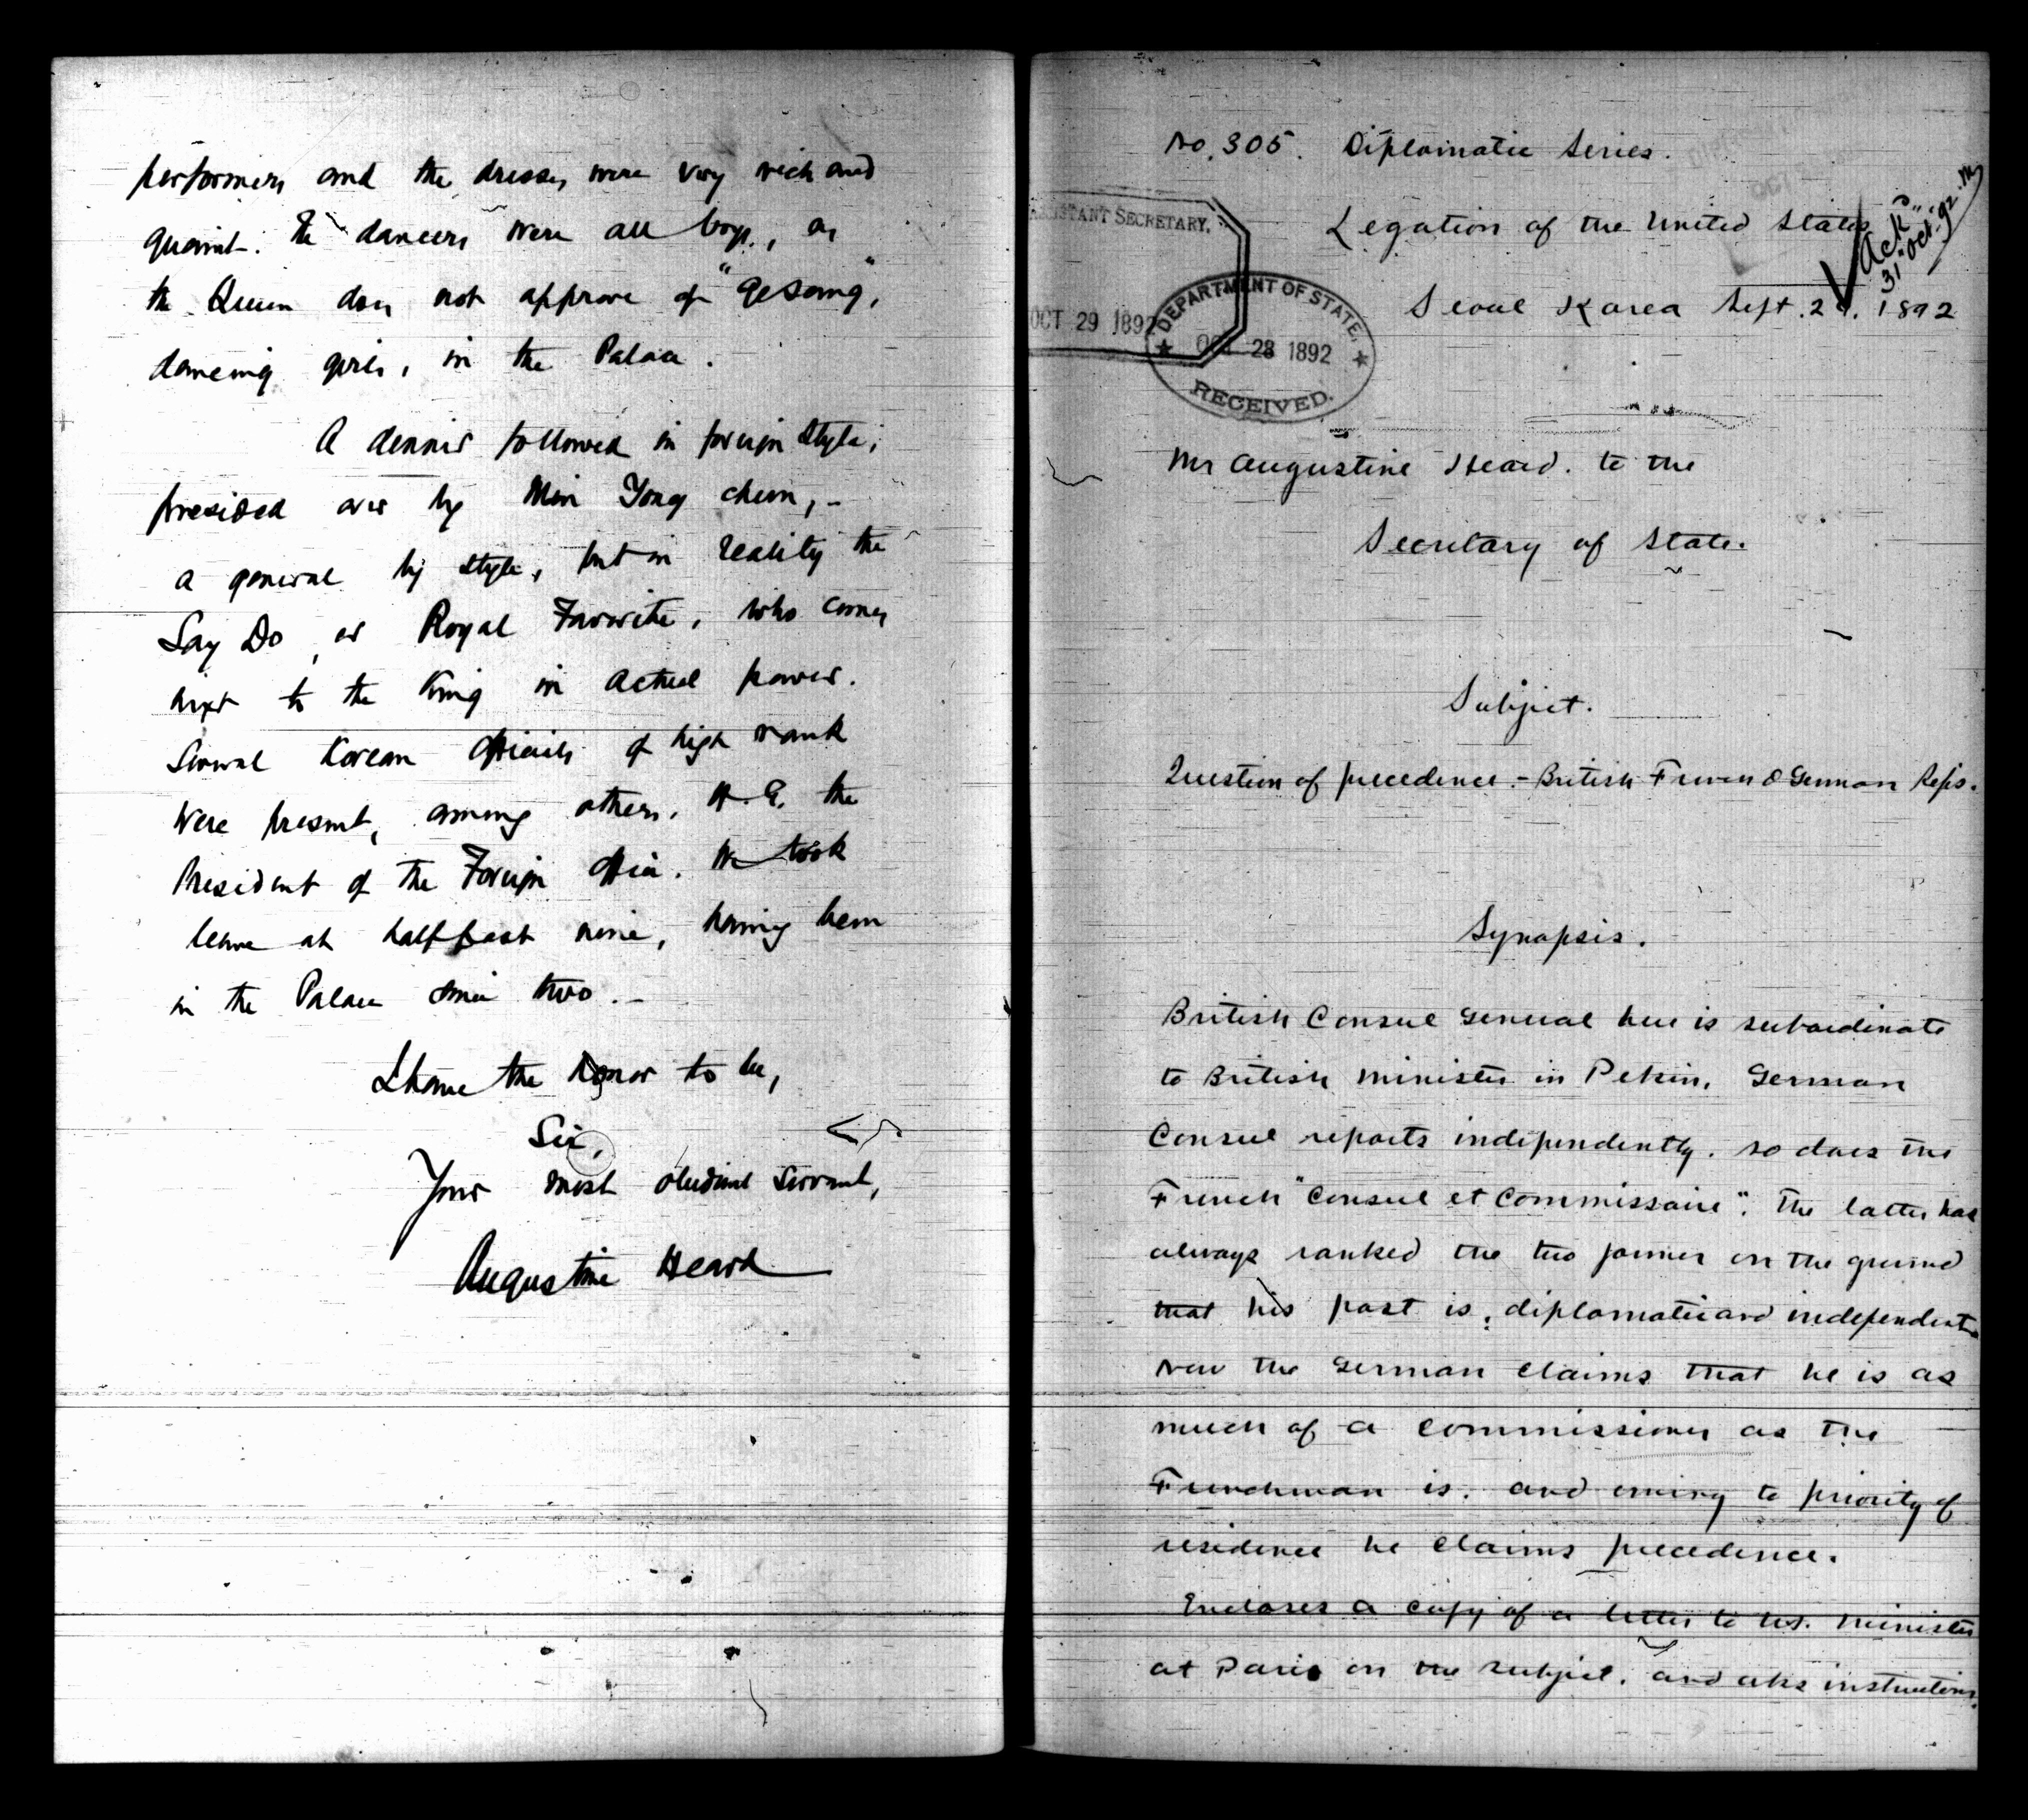 performers and the dresses were very rich and
quaint. The dancers were all boys, as
the Queen does not approve of "Gesang,"
dancing girls, in the Palace.
A dinner followed in foreign style,
presided over by Min Yong chun, -
a general by style, but in reality the
Say Do, or Royal Favorite, who comes
next to the King in actual power.
Several Korean officials of high rank
were present, among others, H. E. the
President of the Foreign Office. We took
leave at half past nine, having been
in the Palace since two. -
I have the honor to be,
Sir,
Your most obedient servant,
Augustine Heard
No. 305. Diplomatic Series.
Legation of the United States
Seoul Korea Sept. 1892
Ackd
31 Oct. 92
ASSISTANT SECRETARY.
OCT 29 1892
DEPARTMENT OF STATE,
OCT 28 1892
RECEIVED.
Mr Augustine Heard. to the
Secretary of State.
Subject.
Question of precedence. - British French & German Reps.
Synopsis.
British Consul General here is subordinate
to British Minister in Pekin. German
Consul reports independently. so does the
French "Consul et Commissaire". The latter has
always ranked the two former on the ground
that his post is diplomatic and independent
Now the German claims that he is as
much of a commissioner as the
Frenchman is. and owing to priority of
residence he claims precedence.
Encloses a copy of a letter to U.S. Minister
at Paris on the subject. and asks instructions.